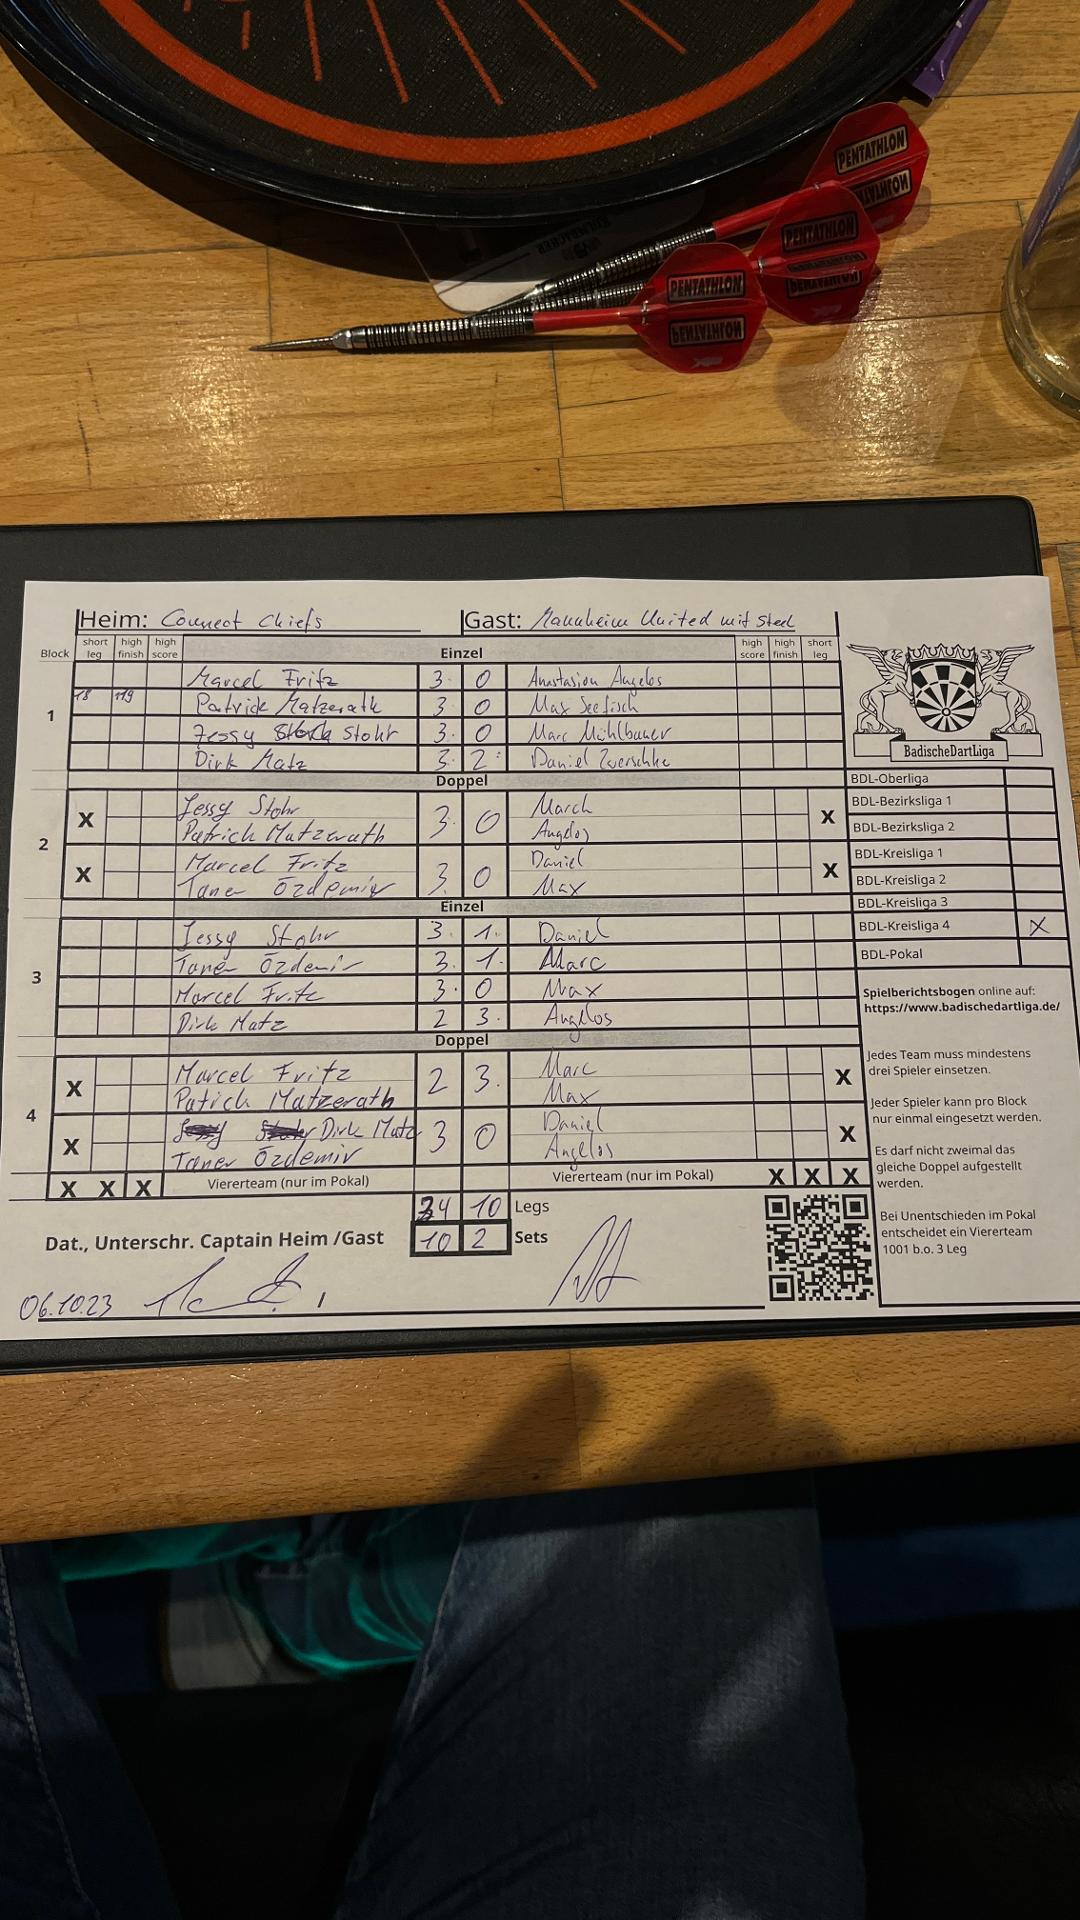 PENTATHLON
PENTATHLON
PENTATHLON
PENTATHLON
PENTATHLON
PENTATHLON
Heim: Connect Chiefs Gast: Mannheim United mit Steel
Block short leg high finish high score Einzel high score high finish short leg
1
Marcel Fritz 3 0 Anastasion Angelos
18 119 Patrick Matzerath 3 0 Max Seefisch
Jessy Stohr 3 0 Marc Mühlbauer
Dirk Matz 3 2 Daniel Zwerschke
Doppel
2
X Jessy Stohr 3 0 March X
Patrick Matzerath Angelos
X Marcel Fritz 3 0 Daniel X
Taner Özdemir Max
Einzel
3
Jessy Stohr 3 1 Daniel
Taner Özdemir 3 1 Marc
Marcel Fritz 3 0 Max
Dirk Matz 2 3 Angelos
Doppel
4
X Marcel Fritz 2 3 Marc X
Patrick Matzerath Max
X Dirk Matz 3 0 Daniel X
Taner Özdemir Angelos
X X X Viererteam (nur im Pokal) Viererteam (nur im Pokal) X X X
34 10 Legs
Dat., Unterschr. Captain Heim /Gast 10 2 Sets
06.10.23 /
BadischeDartLiga
BDL-Oberliga
BDL-Bezirksliga 1
BDL-Bezirksliga 2
BDL-Kreisliga 1
BDL-Kreisliga 2
BDL-Kreisliga 3
BDL-Kreisliga 4 X
BDL-Pokal
Spielberichtsbogen online auf:
https://www.badischedartliga.de/
Jedes Team muss mindestens
drei Spieler einsetzen.
Jeder Spieler kann pro Block
nur einmal eingesetzt werden.
Es darf nicht zweimal das
gleiche Doppel aufgestellt
werden.
Bei Unentschieden im Pokal
entscheidet ein Viererteam
1001 b.o. 3 Leg